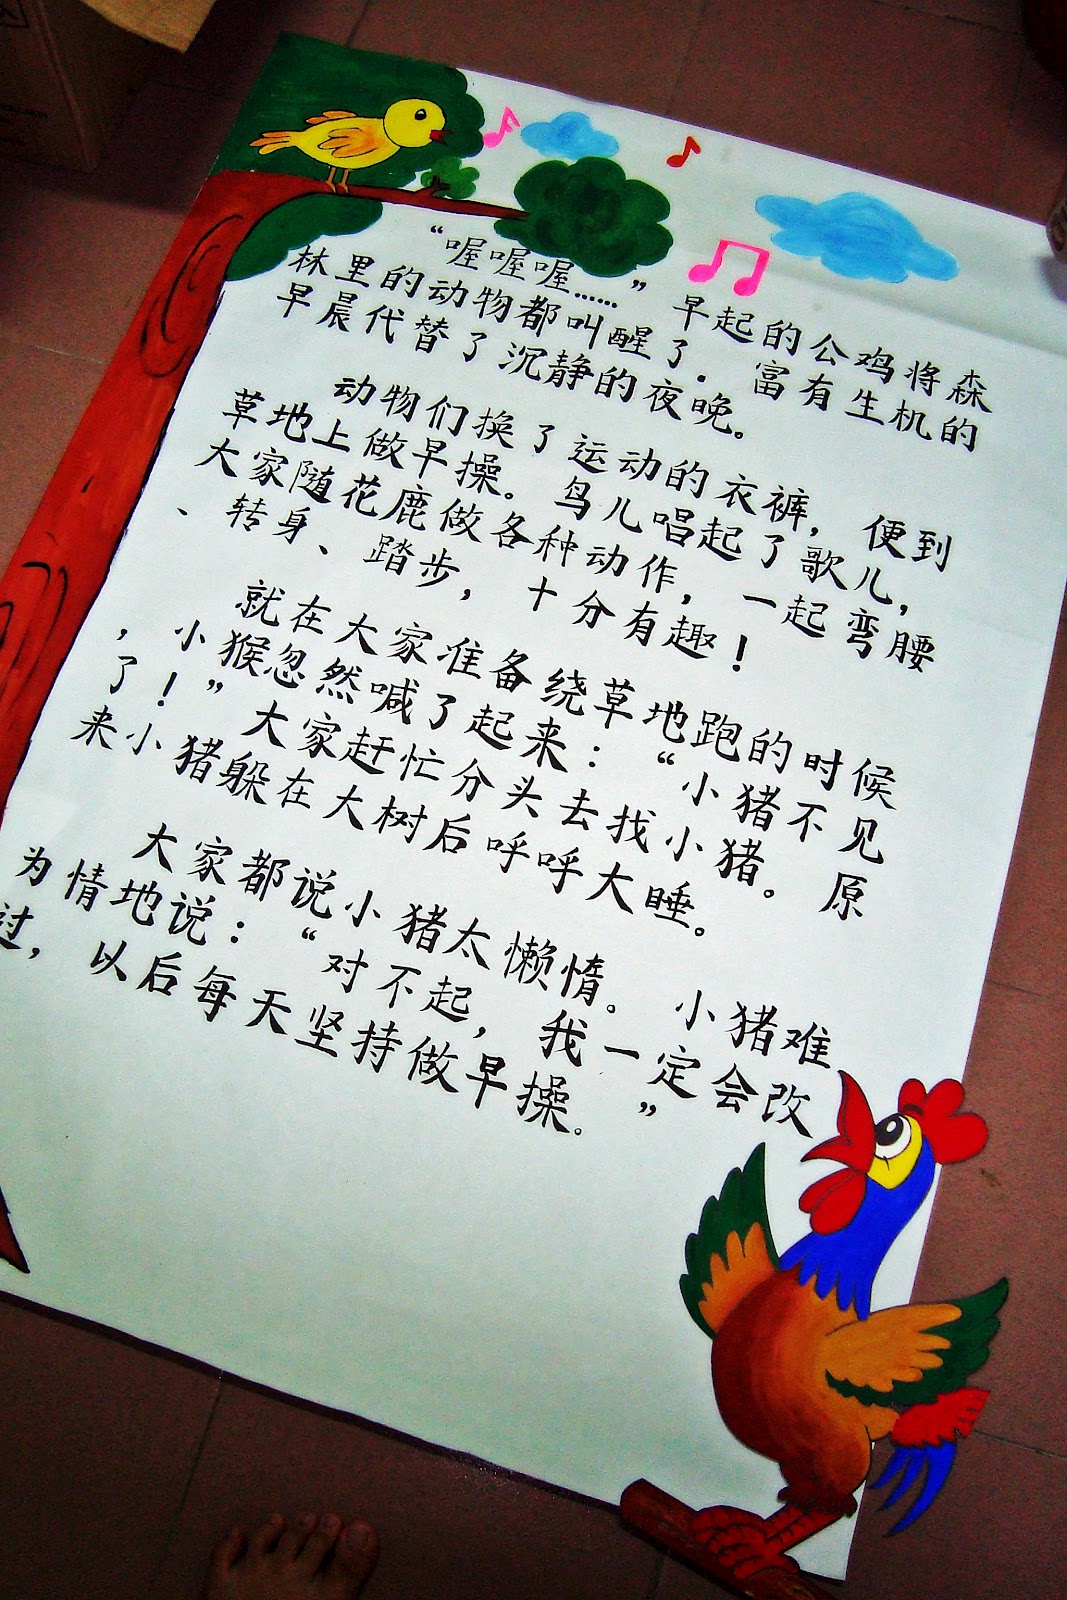 “喔喔喔……”早起的公鸡将森
林里的动物都叫醒了．富有生机的
早晨代替了沉静的夜晚。
动物们换了运动的衣裤，便到
草地上做早操。鸟儿唱起了歌儿，
大家随花鹿做各种动作，一起弯腰
、转身、踏步，十分有趣！
就在大家准备绕草地跑的时候
，小猴忽然喊了起来：“小猪不见
了！”大家赶忙分头去找小猪。原
来小猪躲在大树后呼呼大睡。
大家都说小猪太懒惰。小猪难
为情地说：“对不起，我一定会改
过，以后每天坚持做早操。”